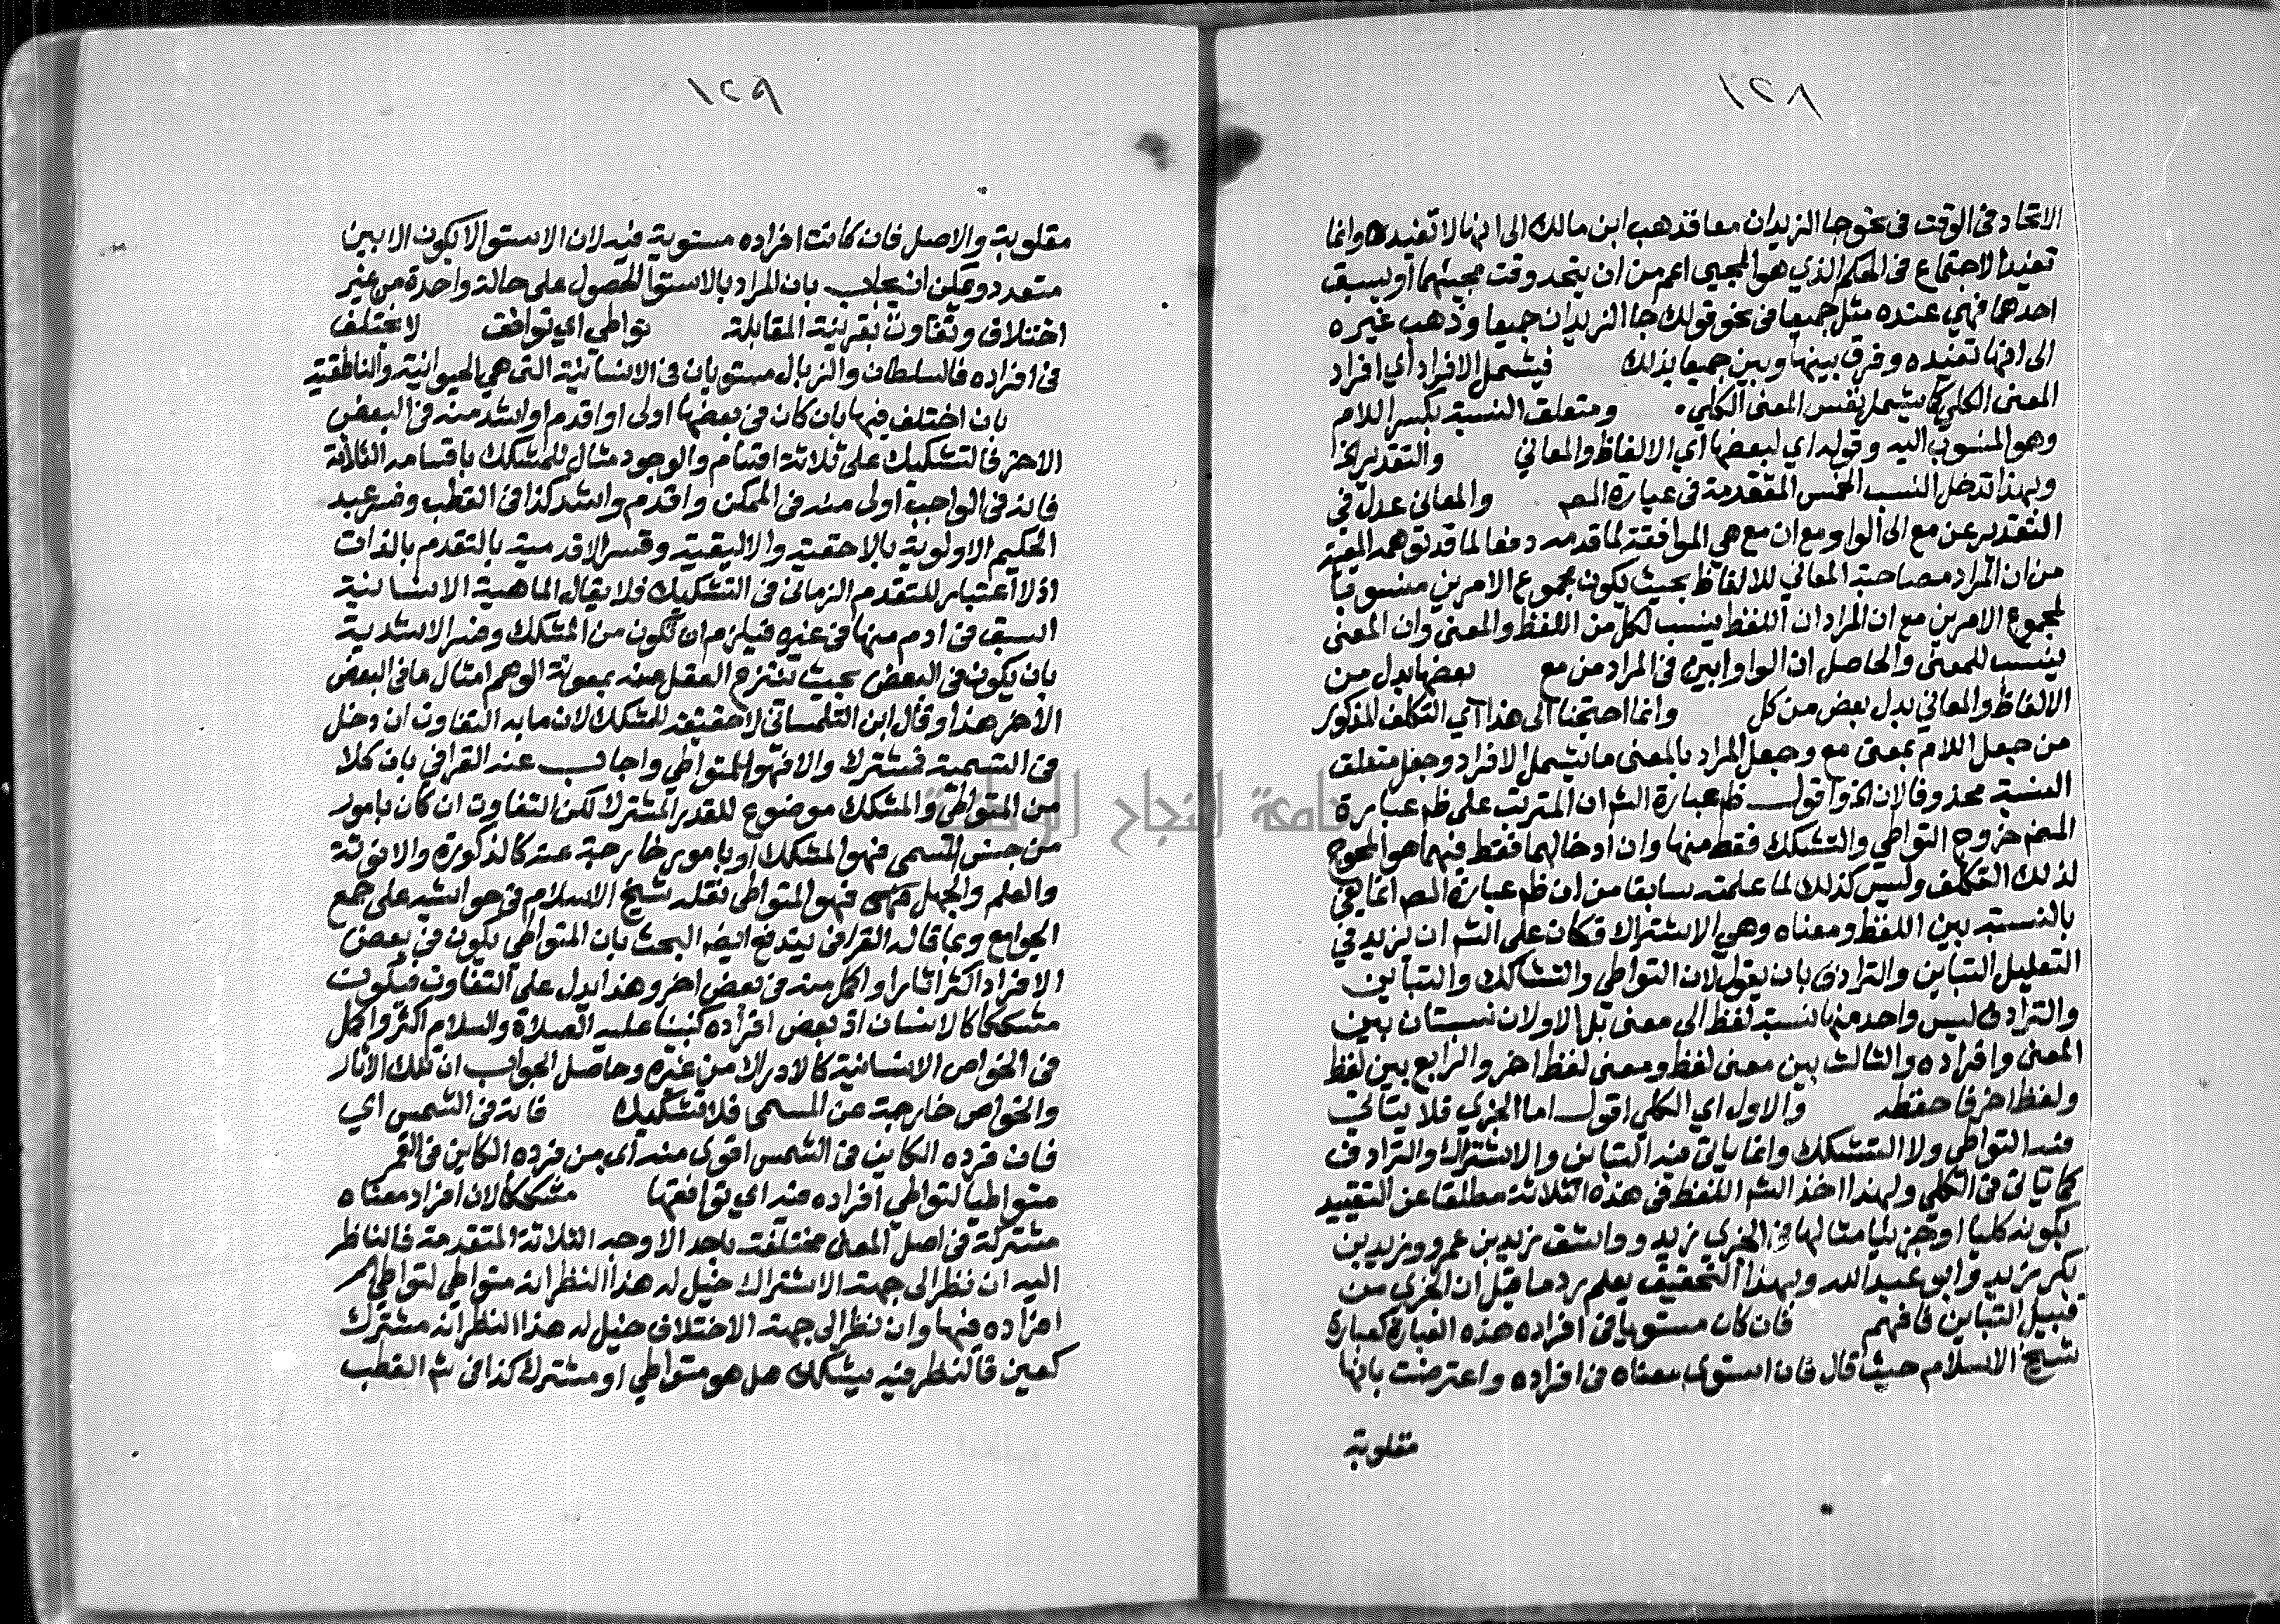 ١٢٨
الاتحاد في الوقت في نحو جا الزيدان معا فذهب ابن مالك الى انها لا تفيده وانما
تفيد الاجتماع في الحكم الذي هو المجيى اعم من ان يتحد وقت مجيئهما او يسبق
احدهما فهي عنده مثل جميعا في نحو قولك جا الزيدان جميعا وذهب غيره
الى انها تفيده وفرق بينها وبين جميعا بذلك فيشمل الافراد اي افراد
المعنى الكلي كما يشمل نفس المعنى الكلي ومتعلق النسبة بكسر اللام
وهو المنسوب اليه وقوله اي لبعضها اي الالفاظ والمعاني والتقدير الخ
وبهذا تدخل النسب الخمس المتقدمة في عبارة المص والمعاني عدل في
التقدير عن مع الى الواو مع ان مع هي الموافقة لما قدمه دفعا لما قد توهمه المعية
من ان المراد مصاحبة المعاني للالفاظ بحيث يكون مجموع الامرين منسوبا
لمجموع الامرين مع ان المراد ان اللفظ ينسب لكل من اللفظ والمعنى وان المعنى
ينسب للمعنى والحاصل ان الواو ابين في المراد من مع بعضها بدل من
الالفاظ والمعاني بدل بعض من كل وانما احتجنا الى هذا اي التكلف المذكور
من جعل اللام بمعنى مع وجعل المراد بالمعنى ما يشمل الافراد وجعل متعلق
النسبة محذوفا لان الخ واقول ظم عبارة الش ان المترتب على ظم عبارة
المص خروج التواطي والتشكك فقط منها وان ادخالهما فقط فيهما هو المحوج
لذلك التكلف وليس كذلك لما علمته سابقا من ان ظم عبارة المص انما يفي
بالنسبة بين اللفظ ومعناه وهي الاشتراك فكان على الش ان يزيد في
التعليل التباين والترادف بان يقول لان التواطي والتشكك والتباين
والترادف ليس واحد منها نسبة لفظ الى معنى بل الاولان نسبتان بين
المعنى وافراده والثالث بين معنى لفظ ومعنى لفظ اخر والرابع بين لفظ
ولفظ اخر فاحفظه والاول اي الكلي اقول اما الجزي فلا يتاتى
فيه التواطي ولا التشكك وانما ياتي فيه التباين والاشتراك والترادف
كما تاتي في الكلي ولهذا اخذ الش اللفظ في هذه الثلاثة مطلقا عن التقييد
بكونه كليا او جزئيا مثالها في الجزي زيد و زيد بن عمرو وزيد بن
بكر زيد وابو عبد الله وبهذا التحقيق يعلم رد ما قيل ان الجزي من
قبيل التباين فافهم فان كان مستويا في افراده هذه العبارة كعبارة
شيخ الاسلام حيث قال فان استوى معناه في افراده واعترضت بانها
مقلوبة
١٢٩
مقلوبة والاصل فان كانت افراده مستوية فيه لان الاستوا لا يكون الا بين
متعدد ويمكن ان يجاب بان المراد بالاستوا الحصول على حالة واحدة من غير
اختلاف وتفاوت بقرينة المقابلة تواطي اي توافق لا يختلف
في افراده فالسلطان والزبال مستويان في الانسانية التي هي الحيوانية والناطقية
بان اختلف فيها بان كان في بعضها اولى او اقدم او اشد منه في البعض
الاخر فالتشكيك على ثلاثة اقسام والوجود مثال للمشكك باقسامه الثلاثة
فانه في الواجب اولى منه في الممكن واقدم واشد كذا في القطب وفسر عبد
الحكيم الاولوية بالاحقية والاليقية وفسر الاقدمية بالتقدم بالذات
اذ لا اعتبار للتقدم الزماني في التشكيك فلا يقال الماهية الانسانية
اسبق في ادم منها في غيره فيلزم ان تكون من المشكك وفسر الاشدية
بان يكون في البعض بحيث ينتزع العقل منه بمعونة الوهم امثال ما في البعض
الاخر هذا وقال ابن التلمساني لا حقيقة للمشكك لان ما به التفاوت ان دخل
في التسمية فمشترك والا فهو المتواطي واجاب عنه القرافي بان كلا
من المتواطي والمشكك موضوع للقدر المشترك لكن التفاوت ان كان بامور
من جنس المسمى فهو المشكك او بامور خارجة عنه كالذكورة والانوثة
والعلم والجهل فهو المتواطي نقله شيخ الاسلام في حواشيه على جمع
الجوامع وبما قاله القرافي يندفع ايضا البحث بان المتواطي يكون في بعض
الافراد اكثر اثارا واكمل منه في بعض اخر وهذا يدل على التفاوت فيكون
مشككا كالانسان اذ بعض افراده كنبينا عليه الصلاة والسلام اكثر واكمل
في الخواص الانسانية كالادراك من غيره وحاصل الجواب ان تلك الاثار
والخواص خارجة عن المسمى فلا تشكيك فانه في الشمس اي
فان فرده الكاين في الشمس اقوى منه اي من فرده الكاين في القمر
متواطيا لتواطي افراده فيه اي توافقها مشككا لان افراد معناه
مشتركة في اصل المعنى مختلفة باحد الاوجه الثلاثة المتقدمة فالناظر
اليه ان نظر الى جهة الاشتراك خيل له هذا النظر انه متواطي لتواطي
افراده فيها وان نظر الى جهة الاختلاف خيل له هذا النظر انه مشترك
كعين فالنظر فيه يشكك هل هو متواطي او مشترك كذا في ش القطب
جامعة النجاح الوطنية